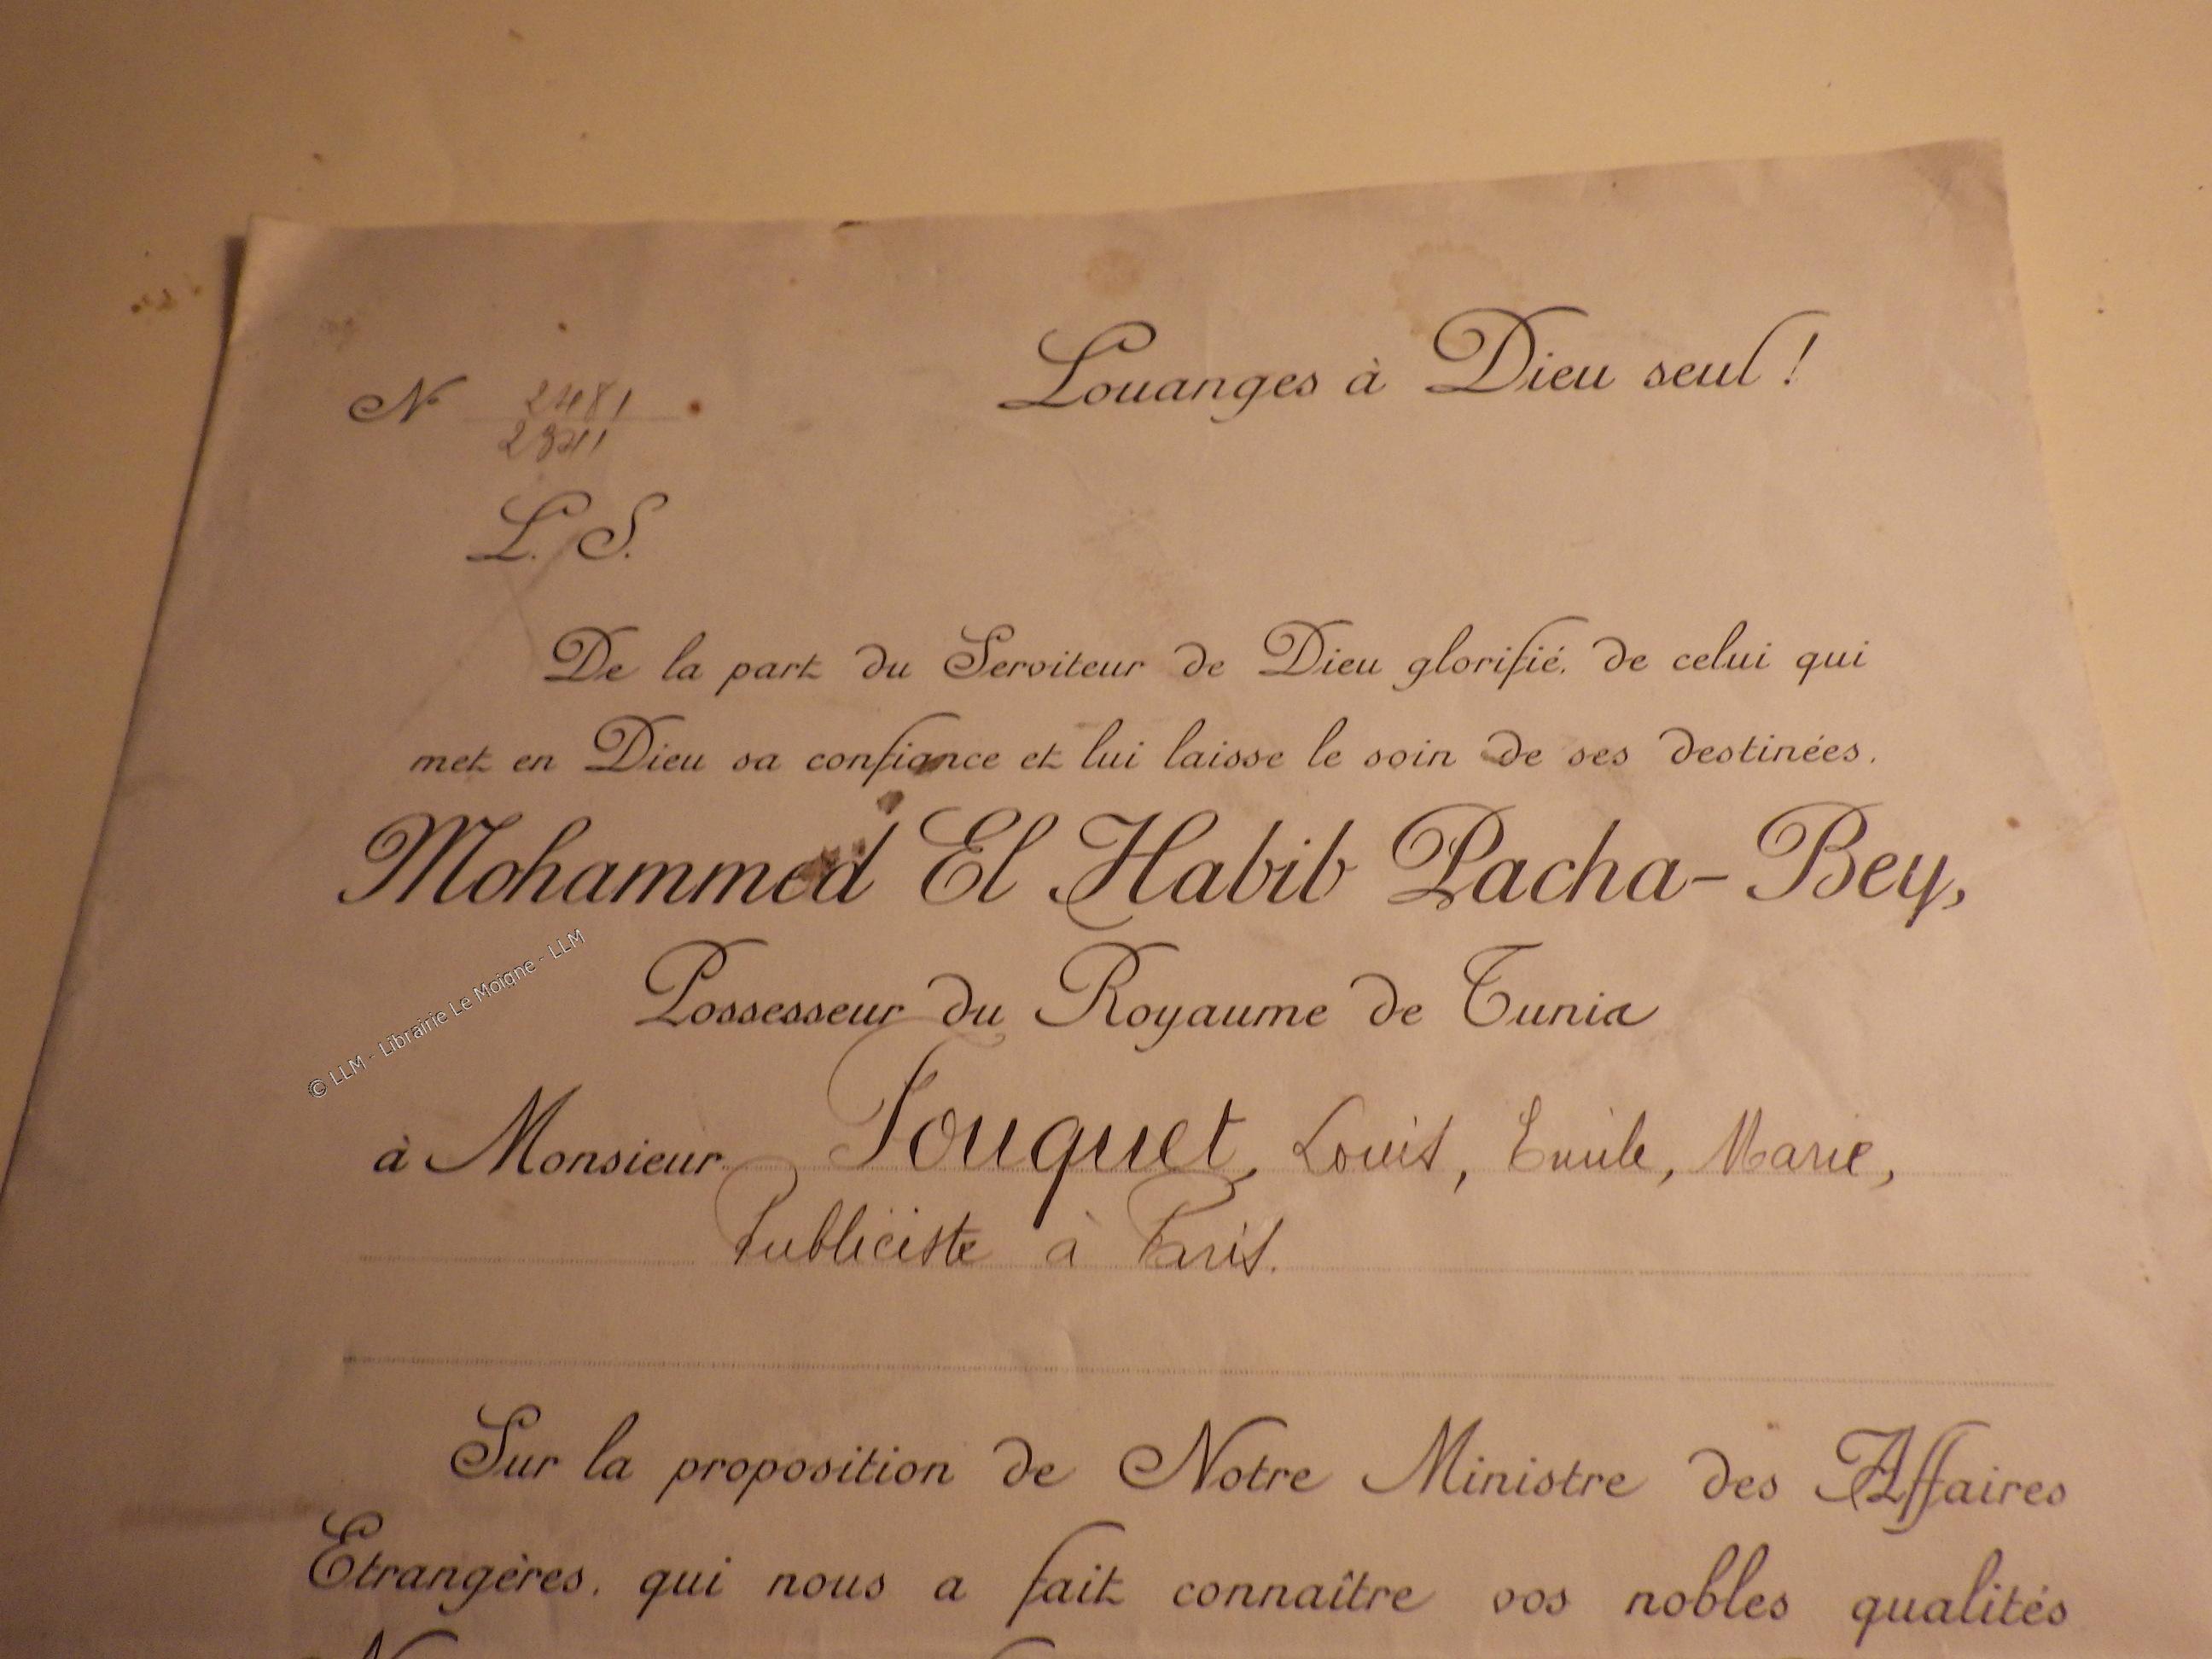 Louanges à Dieu seul !
N° 2481
L. S.
De la part du Serviteur de Dieu glorifié, de celui qui
met en Dieu sa confiance et lui laisse le soin de ses destinées,
Mohammed El Habib Pacha-Bey,
Possesseur du Royaume de Tunis
à Monsieur Fouquet, Louis, Emile, Marie,
Publiciste à Paris.
Sur la proposition de Notre Ministre des Affaires
Etrangères, qui nous a fait connaître vos nobles qualités
© LLM - Librairie Le Moigne - LLM